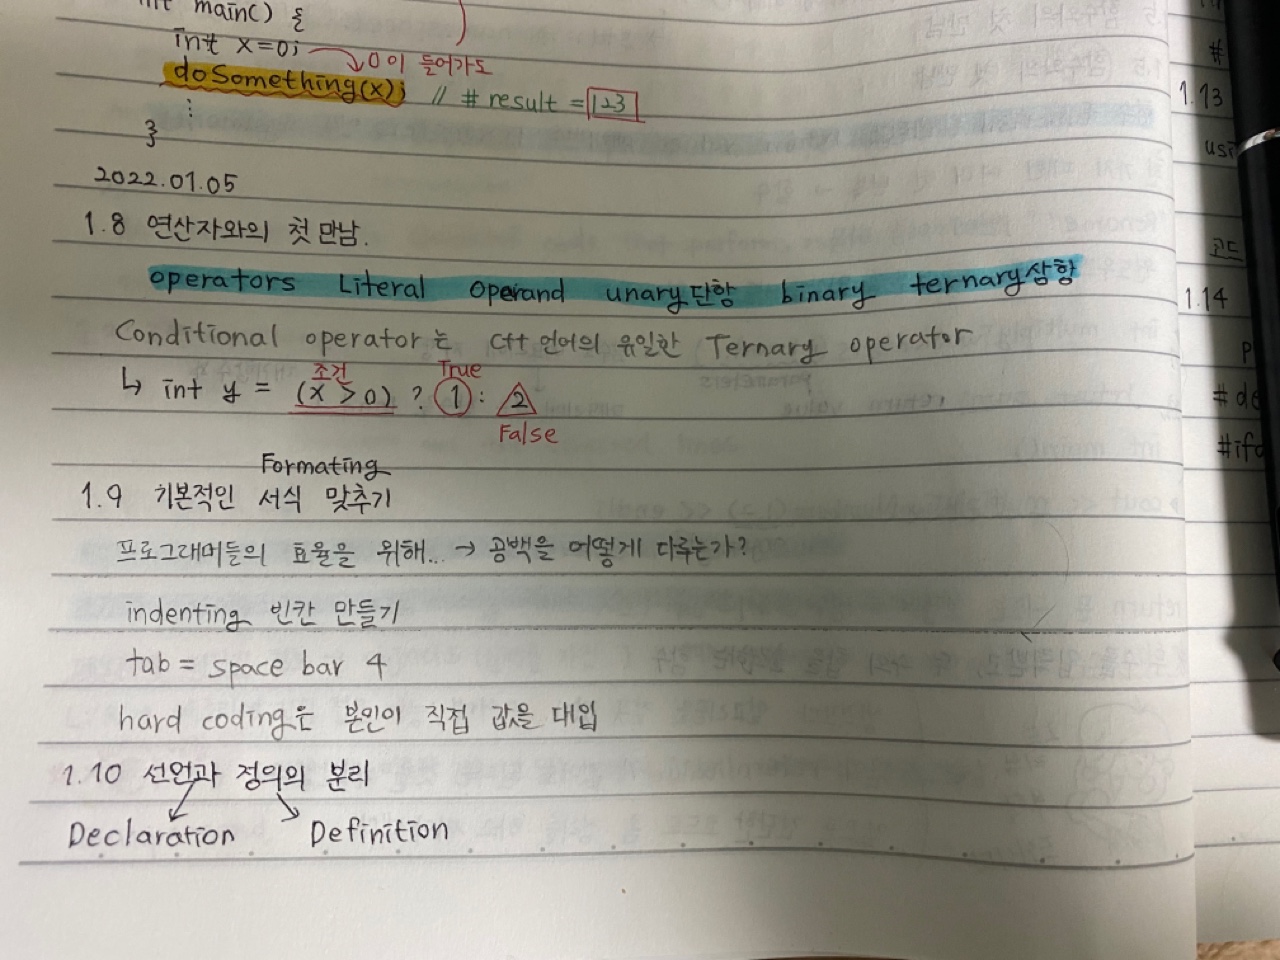 main() {
int x=0;
0이 들어가도
doSomething(x); // # result = 123
⋮
}
2022.01.05
1.8 연산자와의 첫 만남.
operators Literal Operand unary단항 binary ternary삼항
Conditional operator는 C++ 언어의 유일한 Ternary operator
조건 True
↳ int y = (x > 0) ? 1 : 2
False
Formating
1.9 기본적인 서식 맞추기
프로그래머들의 효율을 위해... → 공백을 어떻게 다루는가?
indenting 빈칸 만들기
tab = space bar 4
hard coding은 본인이 직접 값을 대입
1.10 선언과 정의의 분리
Declaration Definition
#
1.13
usi
코드
1.14
P
#de
#ifd